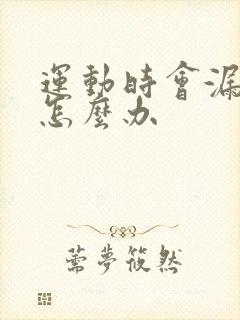 運動時會漏
怎麼办
薷夢筱然